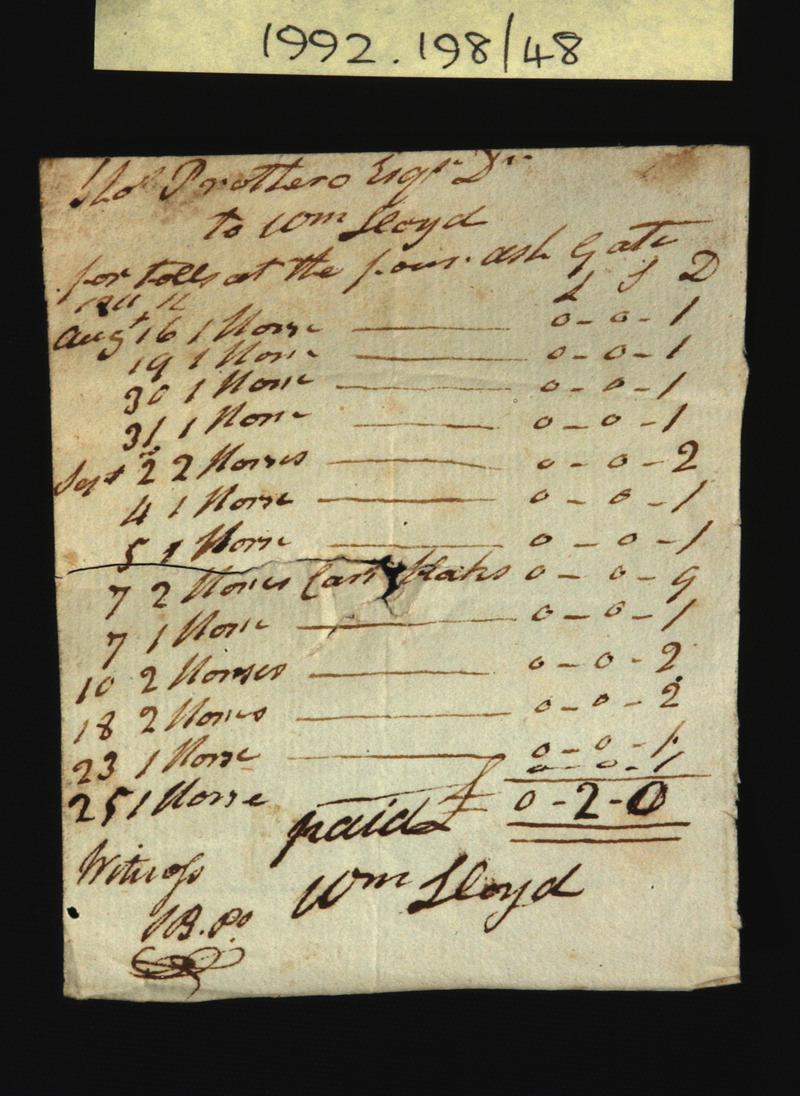 1992.198/48
Thos Prothero Esqr Dr
to Wm Lloyd
for tolls at the four ash Gate
£ S D
Augst 16 1 Horse 0-0-1
19 1 Horse 0-0-1
30 1 Horse 0-0-1
31 1 Horse 0-0-1
Sept 2 2 Horses 0-0-2
4 1 Horse 0-0-1
5 1 Horse 0-0-1
7 2 Horses 0-0-9
7 1 Horse 0-0-1
10 2 Horses 0-0-2
18 2 Horses 0-0-2
23 1 Horse 0-0-1
25 1 Horse 0-0-1
paid £ 0-2-0
Witness Wm Lloyd